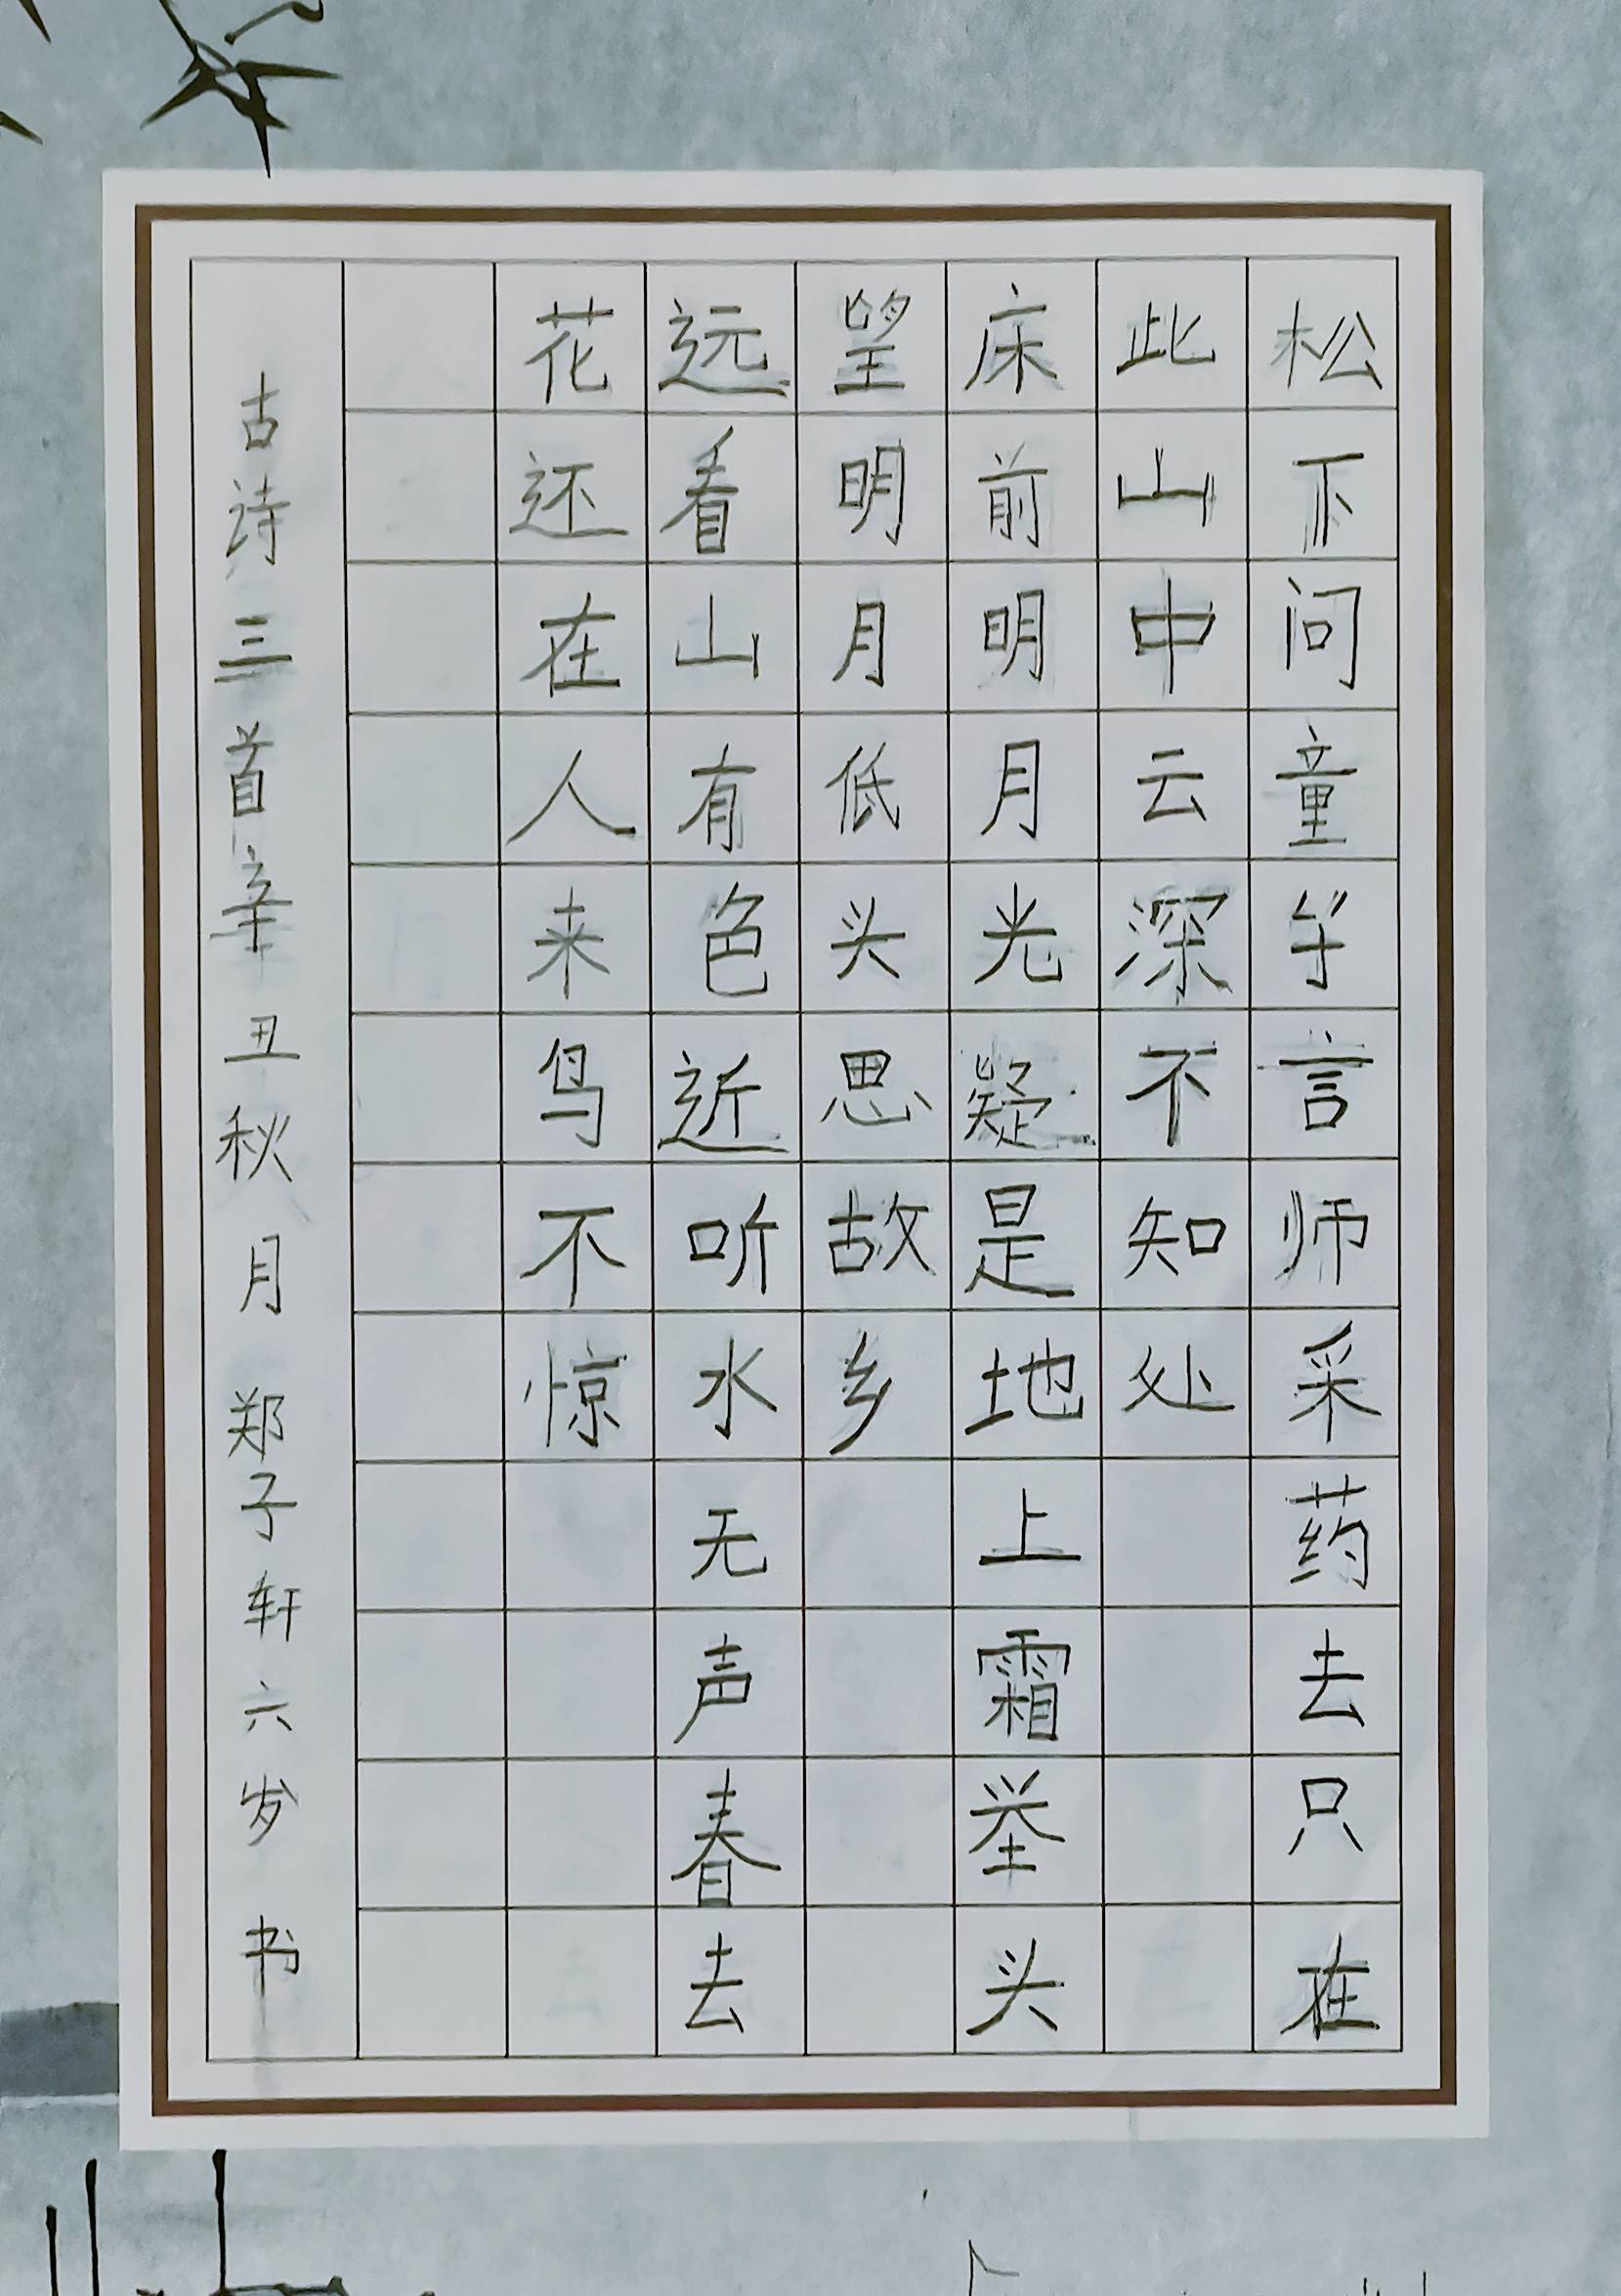 松下问童子言师采药去只在
此山中云深不知处
床前明月光疑是地上霜举头
望明月低头思故乡
远看山有色近听水无声春去
花还在人来鸟不惊
古诗三首辛丑秋月郑子轩六岁书